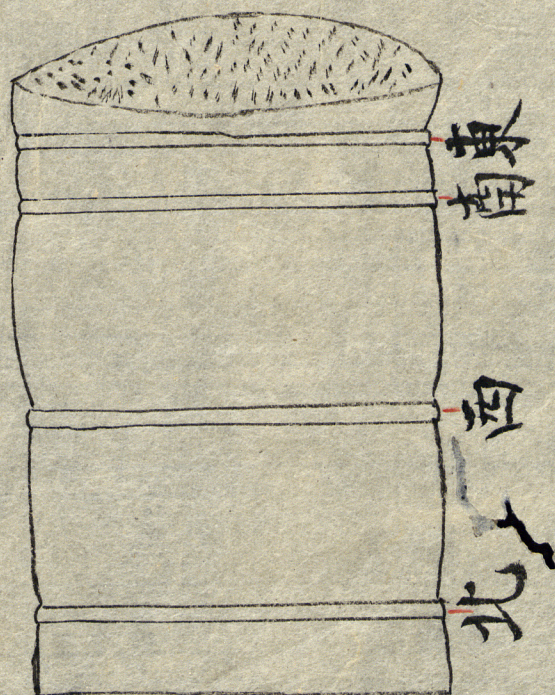 東
南
西
北